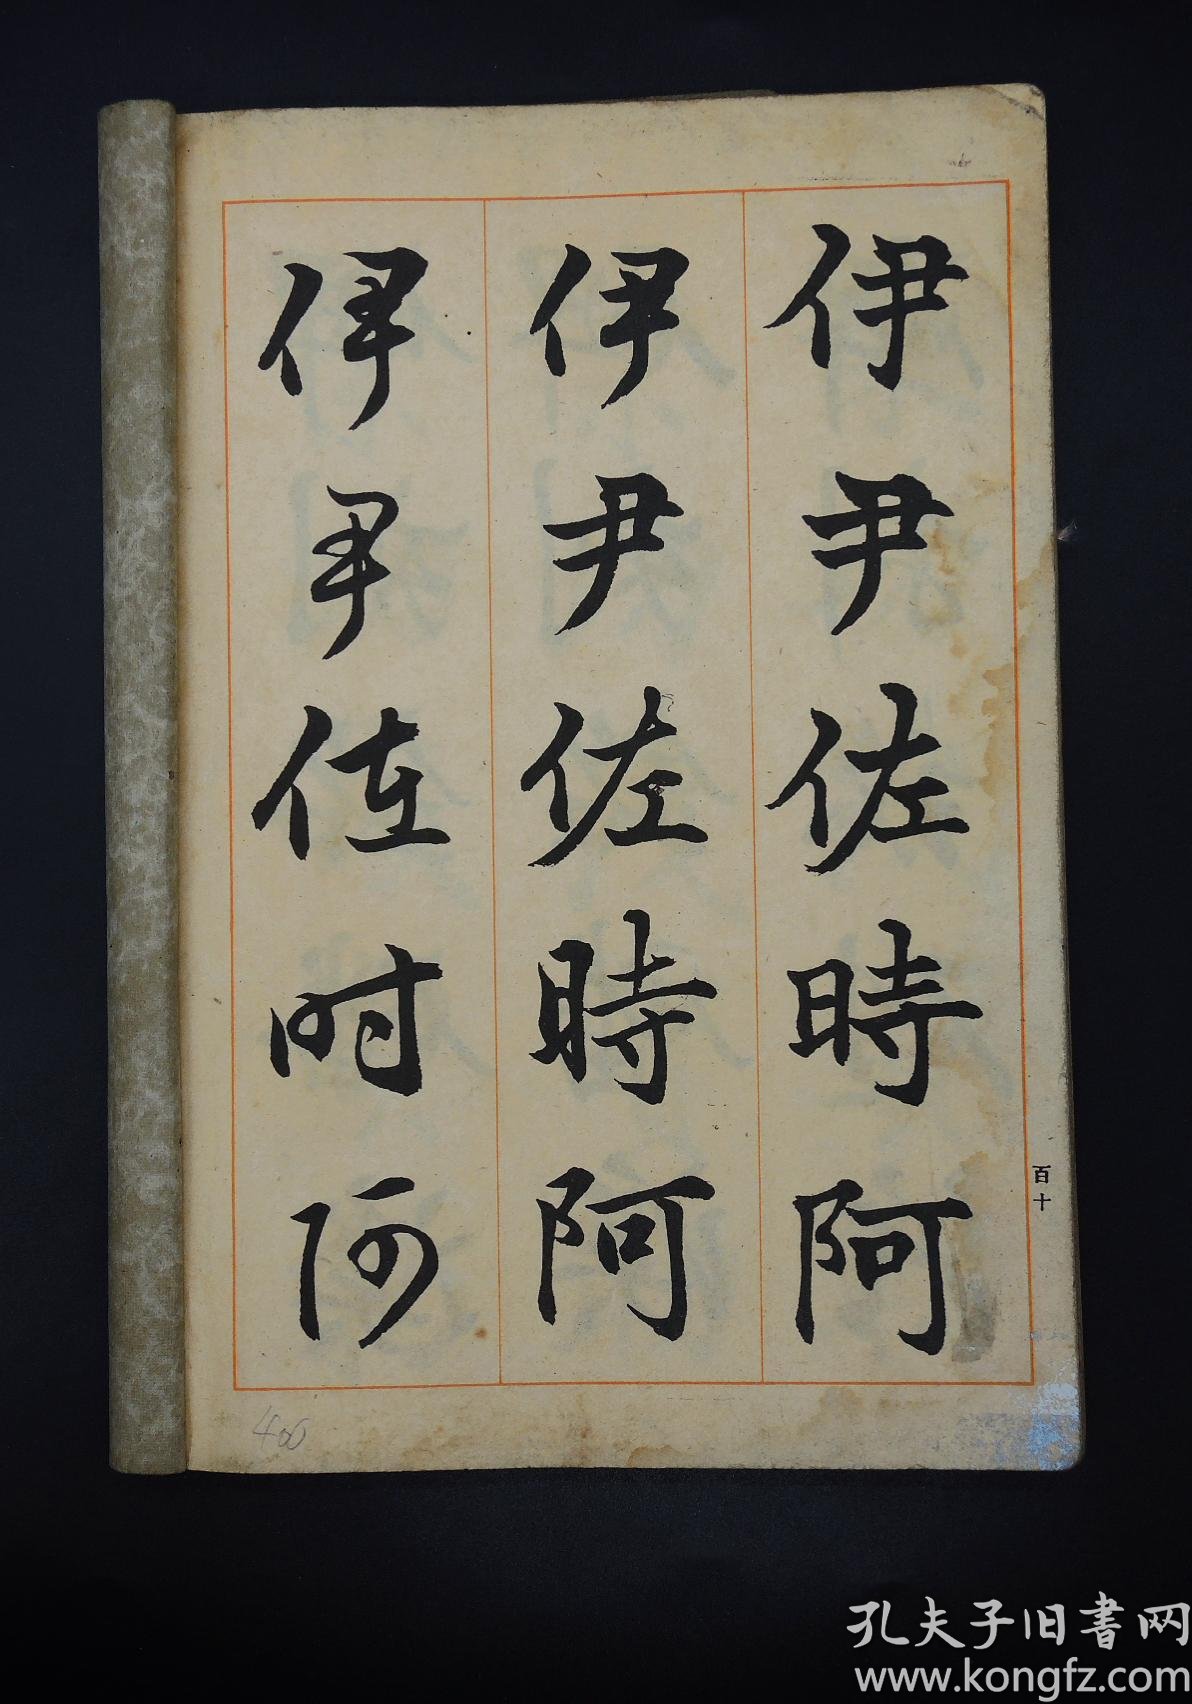 伊尹佐時阿
伊尹佐時阿
伊尹佐時阿
百十
400
孔夫子旧書网
www.kongfz.com